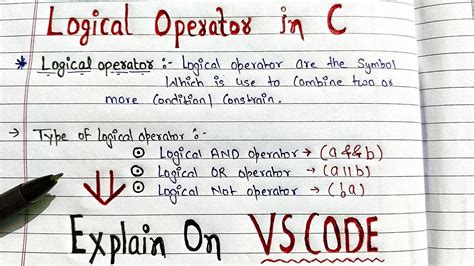 Logical Operator in C
* Logical operator :- Logical operator are the Symbol
Which is use to combine two or
more Condition/ Constrain.
→ Type of logical operator :-
⊙ Logical AND operator → (a && b)
⊙ Logical OR operator → (a || b)
⊙ Logical Not operator → (ba)
Explain On VS CODE